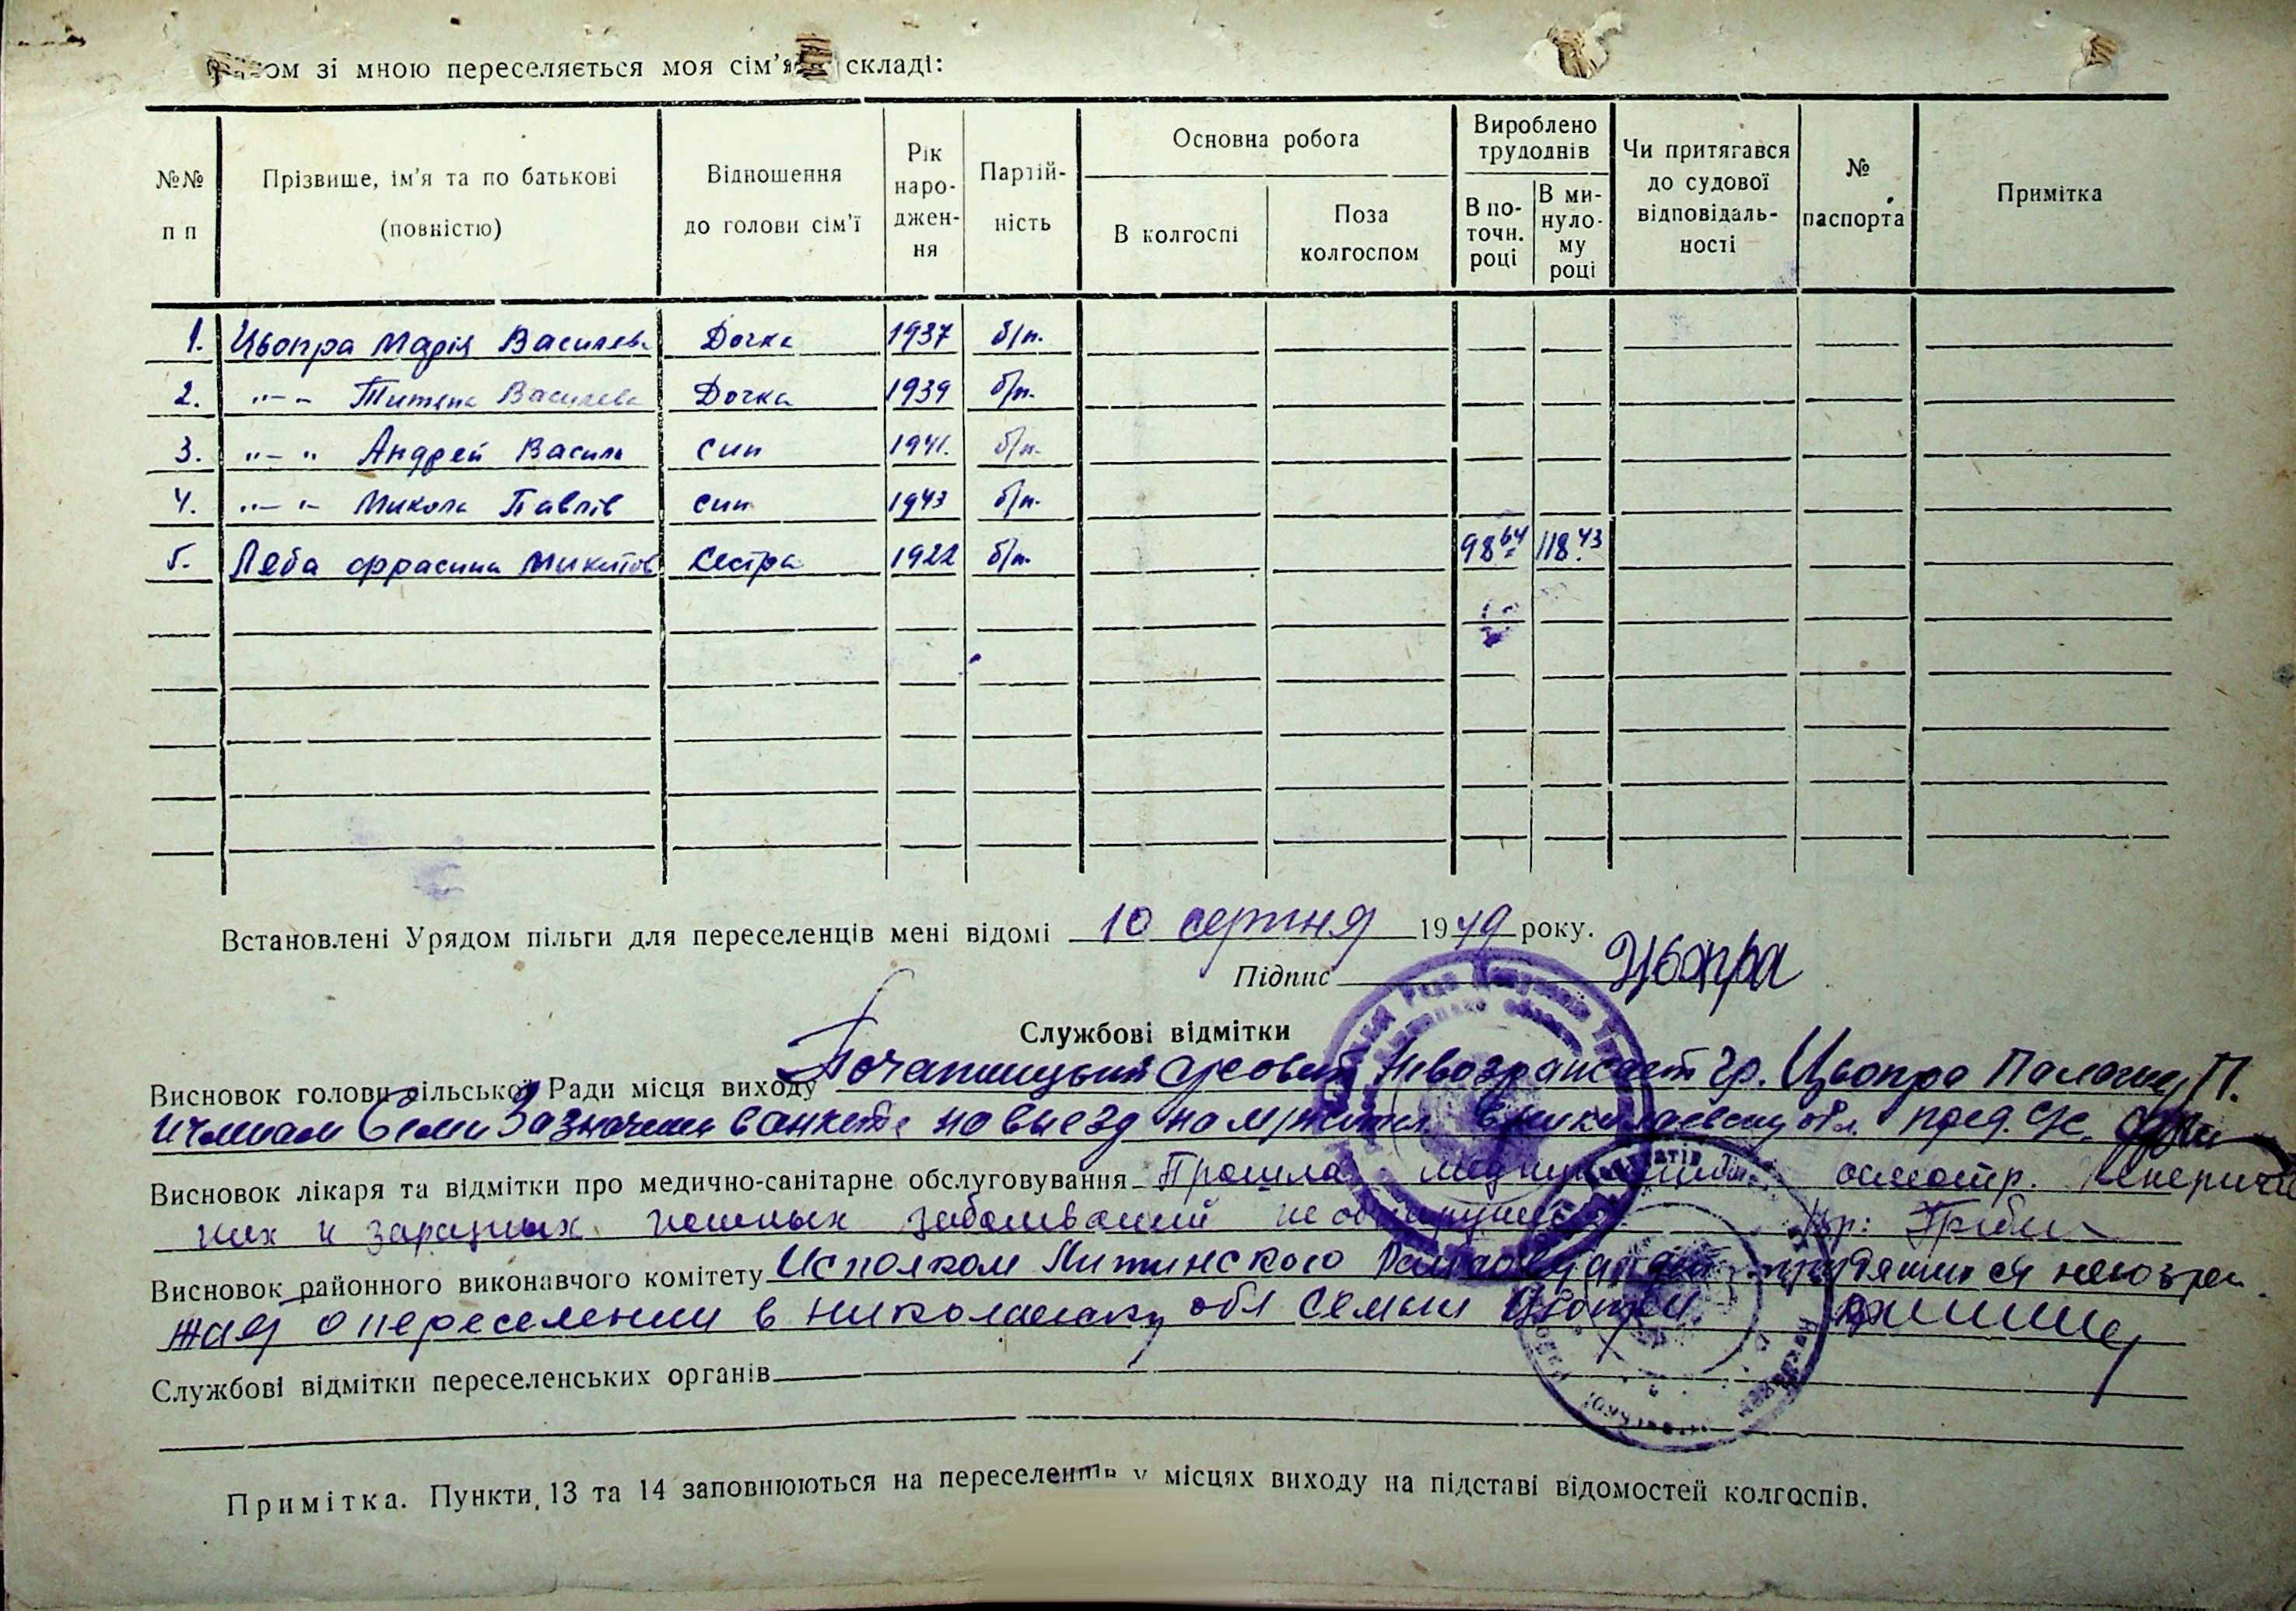 Разом зі мною переселяється моя сім'я в складі:
№№ п п
Прізвище, ім'я та по батькові (повністю)
Відношення до голови сім'ї
Рік народження
Партійність
Основна робота
В колгоспі
Поза колгоспом
Вироблено трудоднів
В поточн. році
В минулому році
Чи притягався до судової відповідальності
№ паспорта
Примітка
1. Цьопра Марія Василева Дочка 1937 б/п.
2. "-" Татяна Василева Дочка 1939 б/п.
3. "-" Андрей Василь син 1941. б/п.
4. "-" Микола Павлів син 1943 б/п.
5. Леба Микитов Сестра 1922 б/п. 98,64 118,43
Встановлені Урядом пільги для переселенців мені відомі 10 серпня 1949 року.
Підпис Цьопра
Службові відмітки
Висновок голови сільської Ради місця виходу невозражает гр. Цьопра П.
на выезд
Висновок лікаря та відмітки про медично-санітарне обслуговування Прошла осмотр.
них и заразных заболеваний не Вр:
Висновок районного виконавчого комітету Исполком
о переселении в обл семьи
Службові відмітки переселенських органів
Примітка. Пункти 13 та 14 заповнюються на переселенців у місцях виходу на підставі відомостей колгоспів.